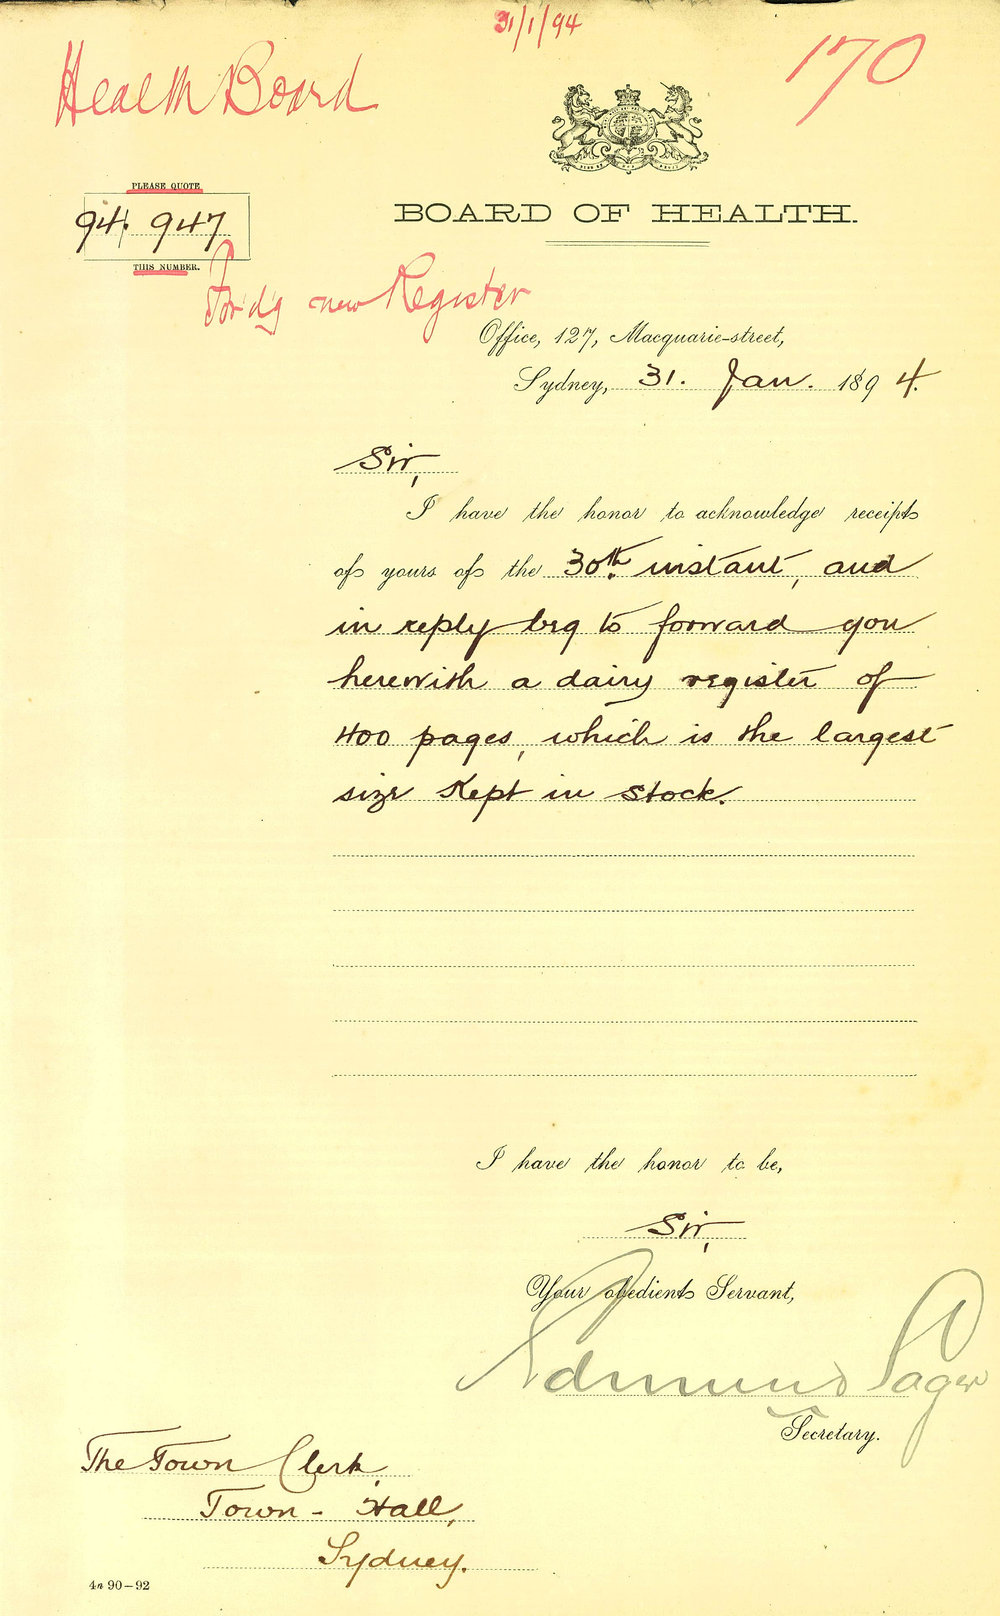 31/1/94
170
Health Board
BOARD OF HEALTH.
PLEASE QUOTE
94. 947
THIS NUMBER.
Ford'g new Register
Office, 127, Macquarie-street,
Sydney, 31. Jan. 1894.
Sir,
I have the honor to acknowledge receipt
of yours of the 30th. instant, and
in reply beg to forward you
herewith a dairy register of
400 pages, which is the largest
size kept in stock.
I have the honor to be,
Sir,
Your obedient Servant,
Edmund Sager
Secretary.
The Town Clerk,
Town-Hall,
Sydney.
4n 90-92